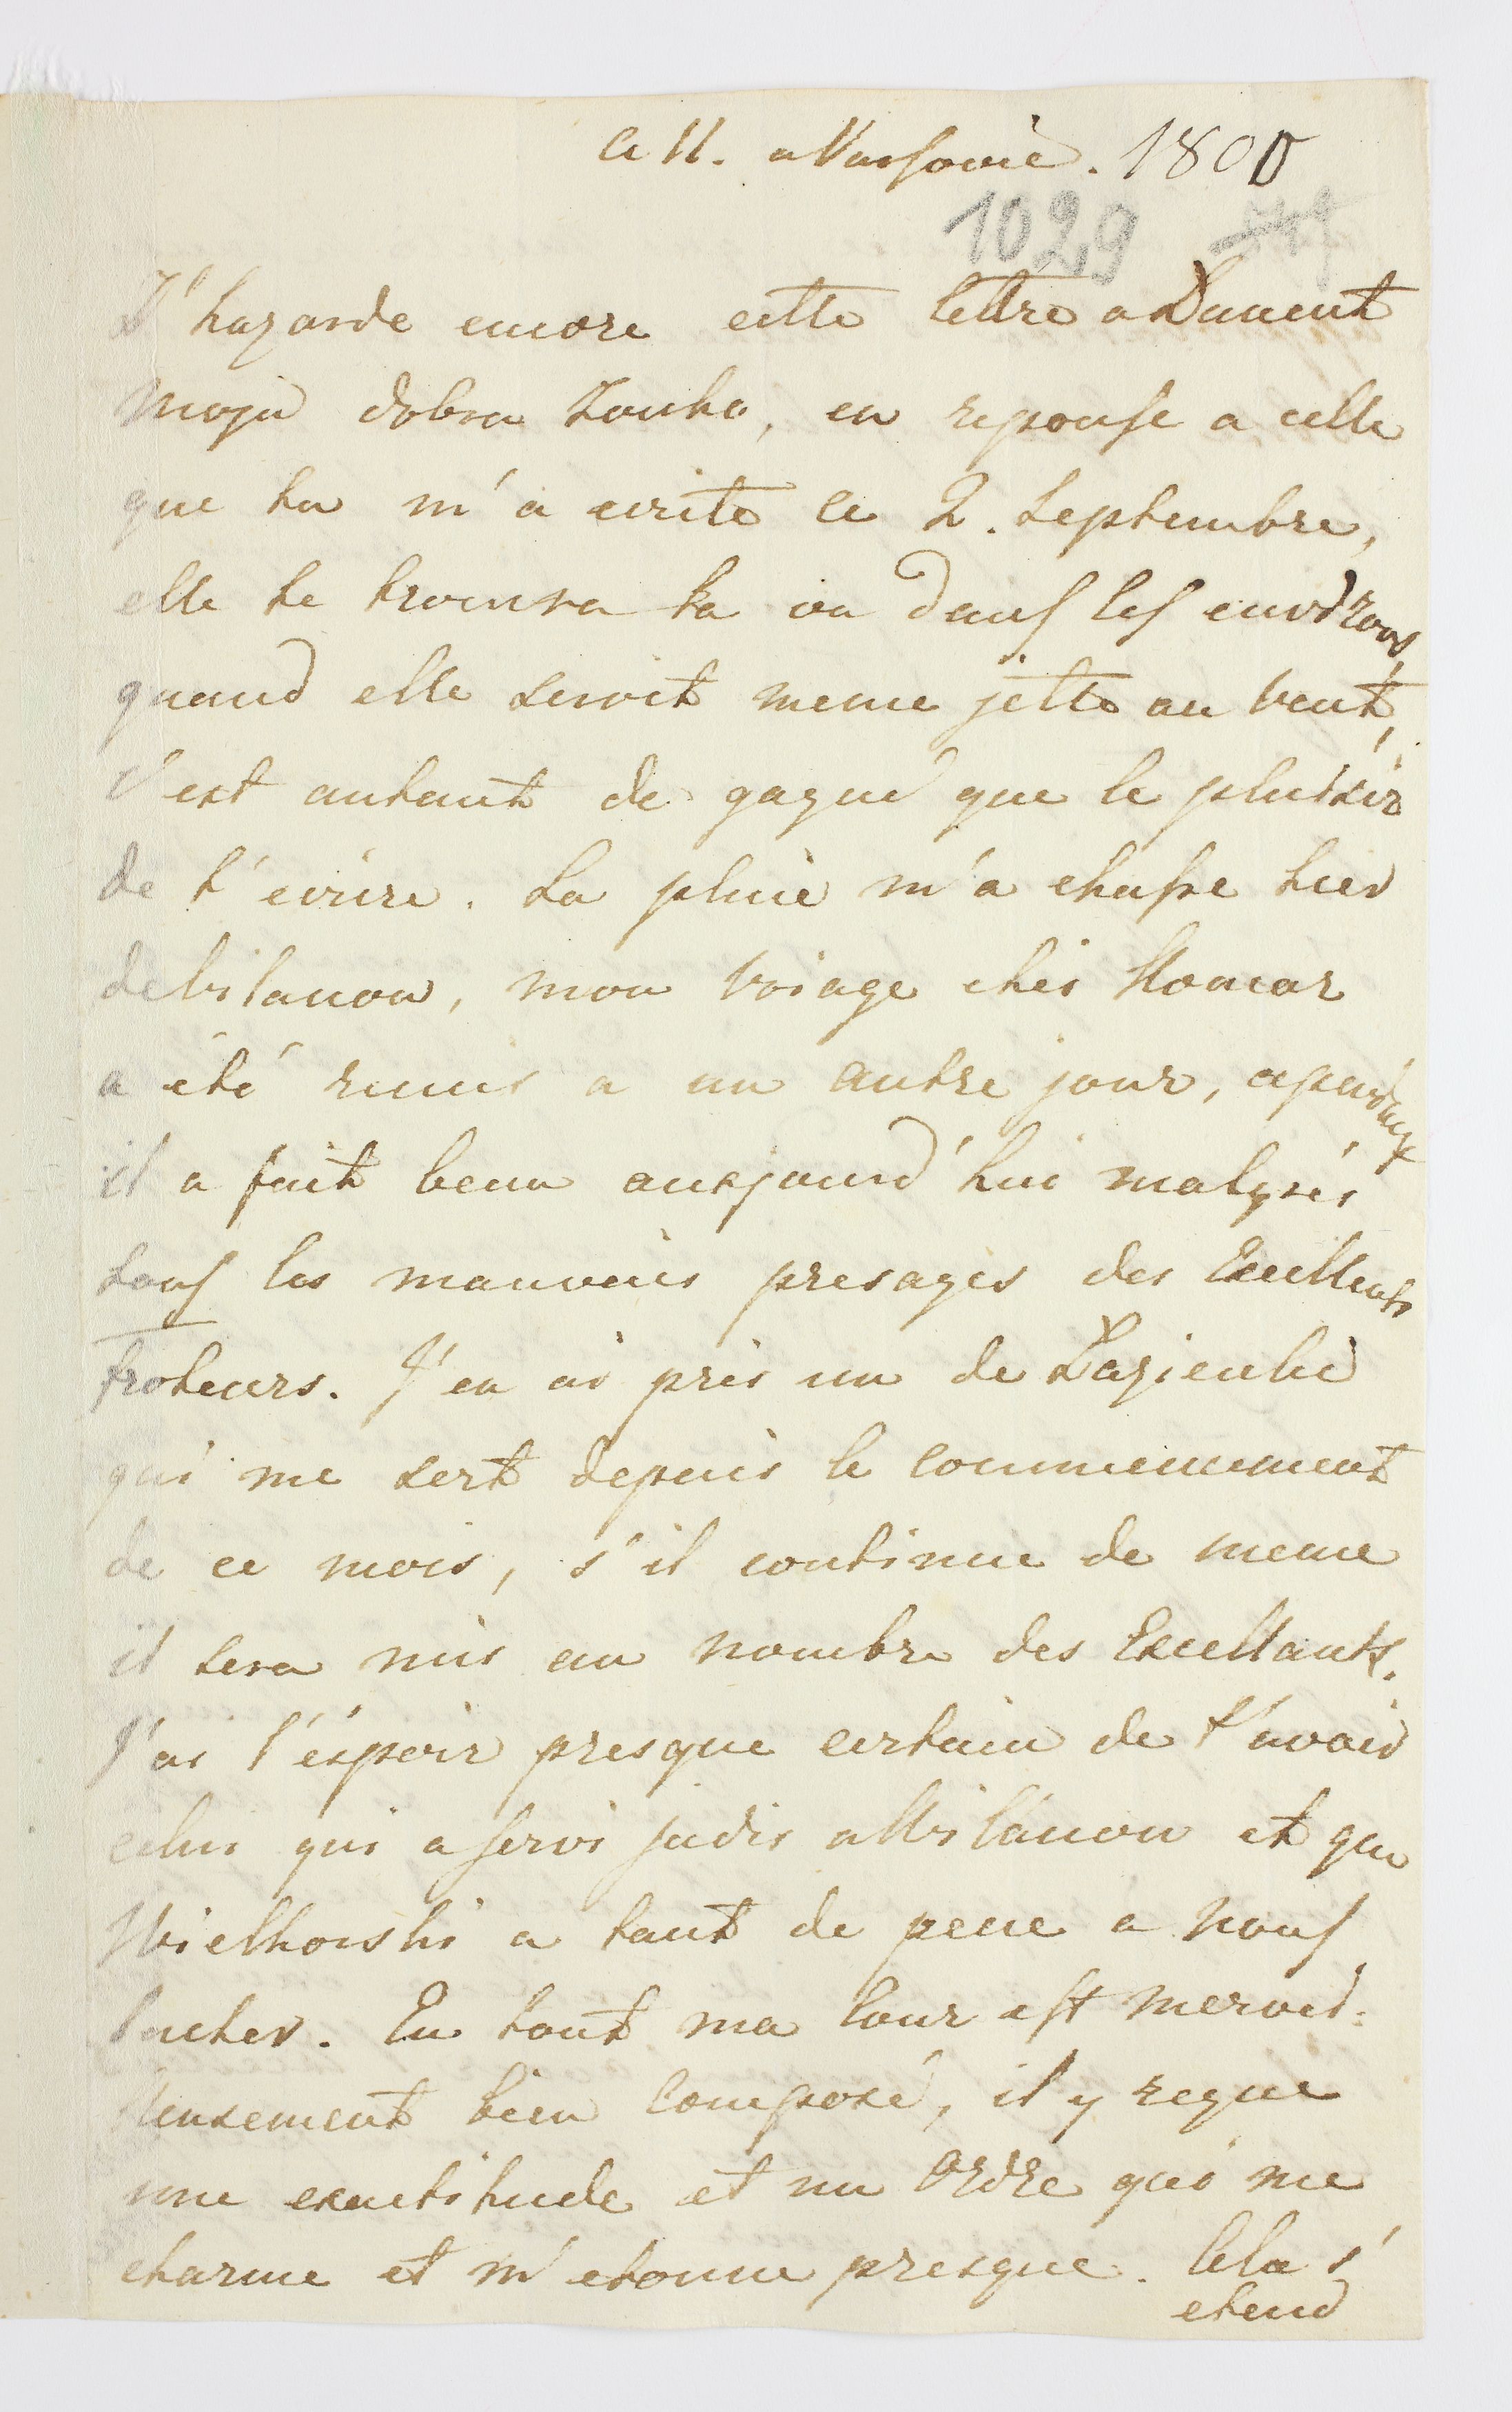 Ce 11. a Varsovie. 1800
1029
J'hazarde encore cette lettre a Dunent
moja dobra Zonko, en reponse a celle
que tu m'a ecrite ce 2. Septembre,
elle te trouvra la ou dans les environs,
quand elle seroit meme jetté au vent,
c'est autant de gagné que le plaisir
de t'ecrire. La pluie m'a chassé hier
de Vilanow, mon voiage chés
a été remis a un autre jour, cependant
il a fait beau aurjourd'hui malgrés
tous les mauvais presages des Excellents
froteurs. J'en ai pris un de Lazienki
qui me sert depuis le commencement
de ce mois, s'il continue de meme
il sera mis au nombre des Excellants.
J'ai l'éspoir presque certain de t'avoir
celui qui a servi jadis a Wilanow et que
Wielhorski a tant de peine a nous
lacher. En tout ma Cour est merveil-
leusement bien composé, il y regne
une exactitude et un Ordre qui me
charme et m'etonne presque. Cela s'
etend